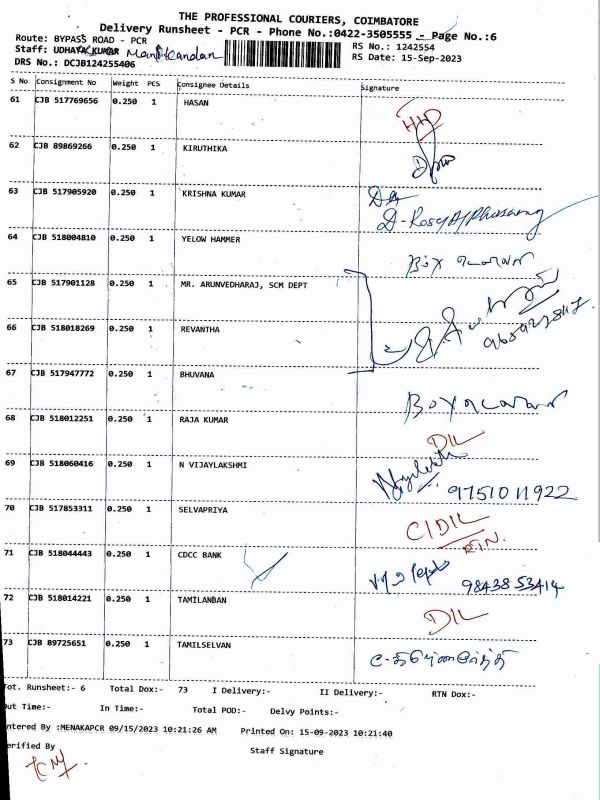 THE PROFESSIONAL COURIERS, COIMBATORE
Delivery Runsheet - PCR - Phone No.:0422-3505555 - Page No.:6
Route: BYPASS ROAD - PCR
RS No.: 1242554
Staff: UDHAYA KUMAR Manikandan
RS Date: 15-Sep-2023
DRS No.: DCJB124255406
S No Consignment No Weight PCS Consignee Details Signature
61 CJB 517769656 0.250 1 HASAN
HHD
62 CJB 89869266 0.250 1 KIRUTHIKA
63 CJB 517905920 0.250 1 KRISHNA KUMAR
64 CJB 518004810 0.250 1 YELOW HAMMER
65 CJB 517901128 0.250 1 MR. ARUNVEDHARAJ, SCM DEPT
66 CJB 518018269 0.250 1 REVANTHA
67 CJB 517947772 0.250 1 BHUVANA
68 CJB 518012251 0.250 1 RAJA KUMAR
D/L
69 CJB 518060416 0.250 1 N VIJAYLAKSHMI
9751011922
70 CJB 517853311 0.250 1 SELVAPRIYA
C/D/L
RTN.
71 CJB 518044443 0.250 1 CDCC BANK
98438 53414
72 CJB 518014221 0.250 1 TAMILANBAN
D/L
73 CJB 89725651 0.250 1 TAMILSELVAN
Tot. Runsheet:- 6 Total Dox:- 73 I Delivery:- II Delivery:- RTN Dox:-
Out Time:- In Time:- Total POD:- Delvy Points:-
ntered By :MENAKAPCR 09/15/2023 10:21:26 AM Printed On: 15-09-2023 10:21:40
erified By Staff Signature